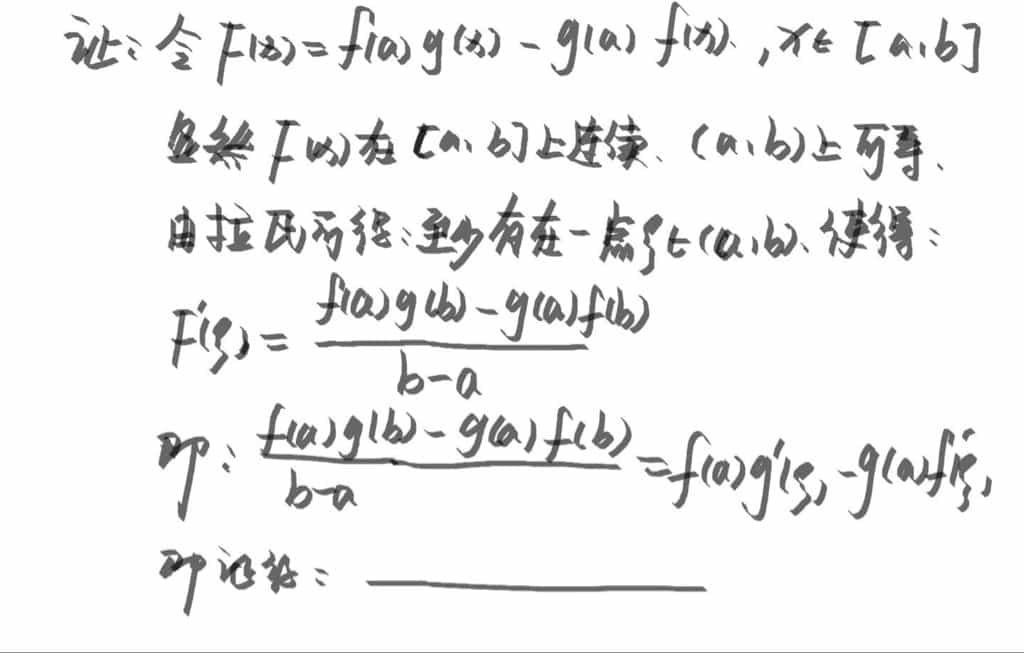 证：令 F(x) = f(a) g(x) - g(a) f(x). , x∈ [a,b]
显然 F(x)在 [a,b]上连续、(a,b)上可导.
由拉氏可得：至少有在一点ξ∈(a,b)、使得：
F'(ξ) = \frac{f(a)g(b) - g(a)f(b)}{b-a}
即： \frac{f(a)g(b) - g(a)f(b)}{b-a} = f(a)g'(ξ) - g(a)f'(ξ)
即证得： ————